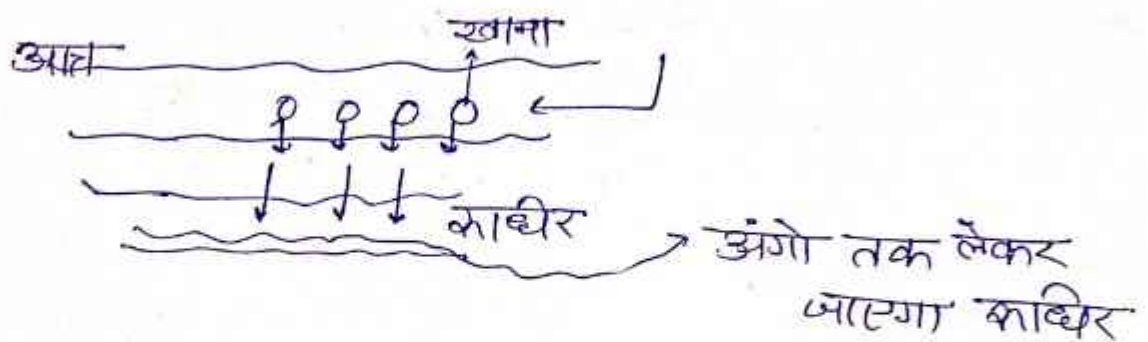 खाना
आंत
रूधिर
अंगो तक लेकर
जाएगा रूधिर